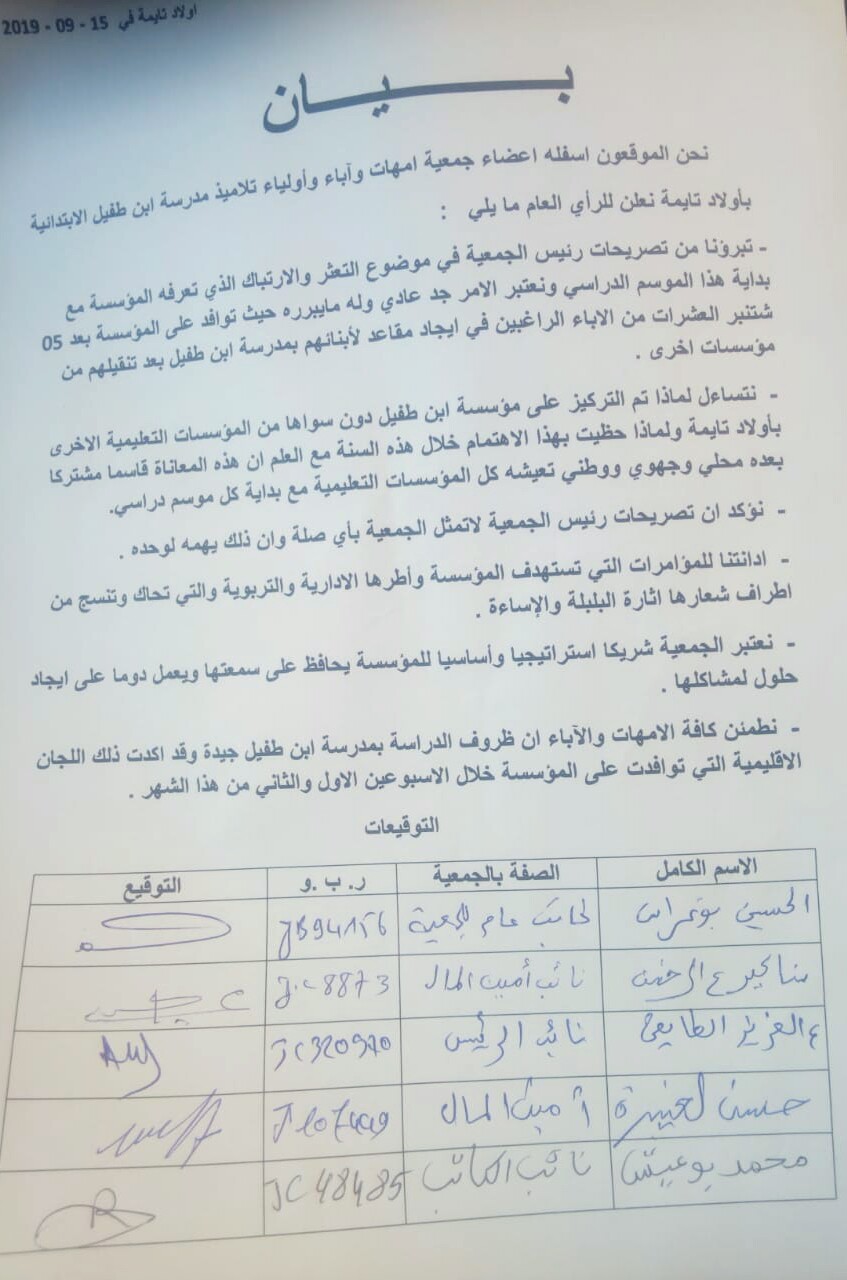 اولاد تايمة في 15 - 09 - 2019
بـــيـــان
نحن الموقعون اسفله اعضاء جمعية امهات وآباء وأولياء تلاميذ مدرسة ابن طفيل الابتدائية
بأولاد تايمة نعلن للرأي العام ما يلي :
- تبرؤنا من تصريحات رئيس الجمعية في موضوع التعثر والارتباك الذي تعرفه المؤسسة مع
بداية هذا الموسم الدراسي ونعتبر الامر جد عادي وله مايبرره حيث توافد على المؤسسة بعد 05
شتنبر العشرات من الاباء الراغبين في ايجاد مقاعد لأبنائهم بمدرسة ابن طفيل بعد تنقيلهم من
مؤسسات اخرى .
- نتساءل لماذا تم التركيز على مؤسسة ابن طفيل دون سواها من المؤسسات التعليمية الاخرى
بأولاد تايمة ولماذا حظيت بهذا الاهتمام خلال هذه السنة مع العلم ان هذه المعاناة قاسما مشتركا
بعده محلي وجهوي ووطني تعيشه كل المؤسسات التعليمية مع بداية كل موسم دراسي.
- نؤكد ان تصريحات رئيس الجمعية لاتمثل الجمعية بأي صلة وان ذلك يهمه لوحده .
- ادانتنا للمؤامرات التي تستهدف المؤسسة وأطرها الادارية والتربوية والتي تحاك وتنسج من
اطراف شعارها اثارة البلبلة والإساءة .
- نعتبر الجمعية شريكا استراتيجيا وأساسيا للمؤسسة يحافظ على سمعتها ويعمل دوما على ايجاد
حلول لمشاكلها .
- نطمئن كافة الامهات والآباء ان ظروف الدراسة بمدرسة ابن طفيل جيدة وقد اكدت ذلك اللجان
الاقليمية التي توافدت على المؤسسة خلال الاسبوعين الاول والثاني من هذا الشهر .
التوقيعات
الاسم الكامل الصفة بالجمعية ر. ب .و التوقيع
الحسين كاتب عام للجمعية JB94156
ع الرحمن نائب أمين المال
ع العزيز نائب الرئيس JC320970
حسن أمين المال
محمد نائب الكاتب JC48485